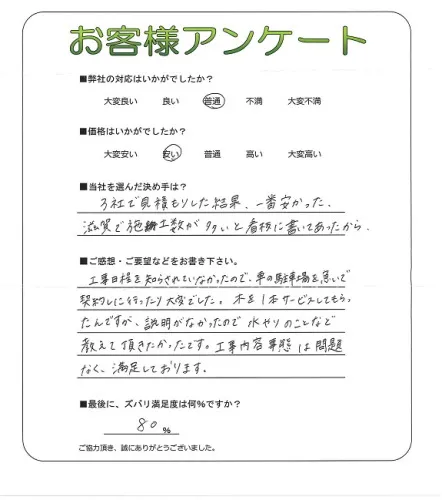 お客様アンケート
■弊社の対応はいかがでしたか？
大変良い 良い 普通 不満 大変不満
■価格はいかがでしたか？
大変安い 安い 普通 高い 大変高い
■当社を選んだ決め手は？
3社で見積もりした結果、一番安かった。
滋賀で施工数が多いと看板に書いてあったから。
■ご感想・ご要望などをお書き下さい。
工事日程を知らされていなかったので、車の駐車場を急いで
契約しに行ったり大変でした。木を1本サービスしてもらっ
たんですが、説明がなかったので水やりのことなど
教えて頂きたかったです。工事内容事態は問題
なく、満足しております。
■最後に、ズバリ満足度は何％ですか？
80％
ご協力頂き、誠にありがとうございました。